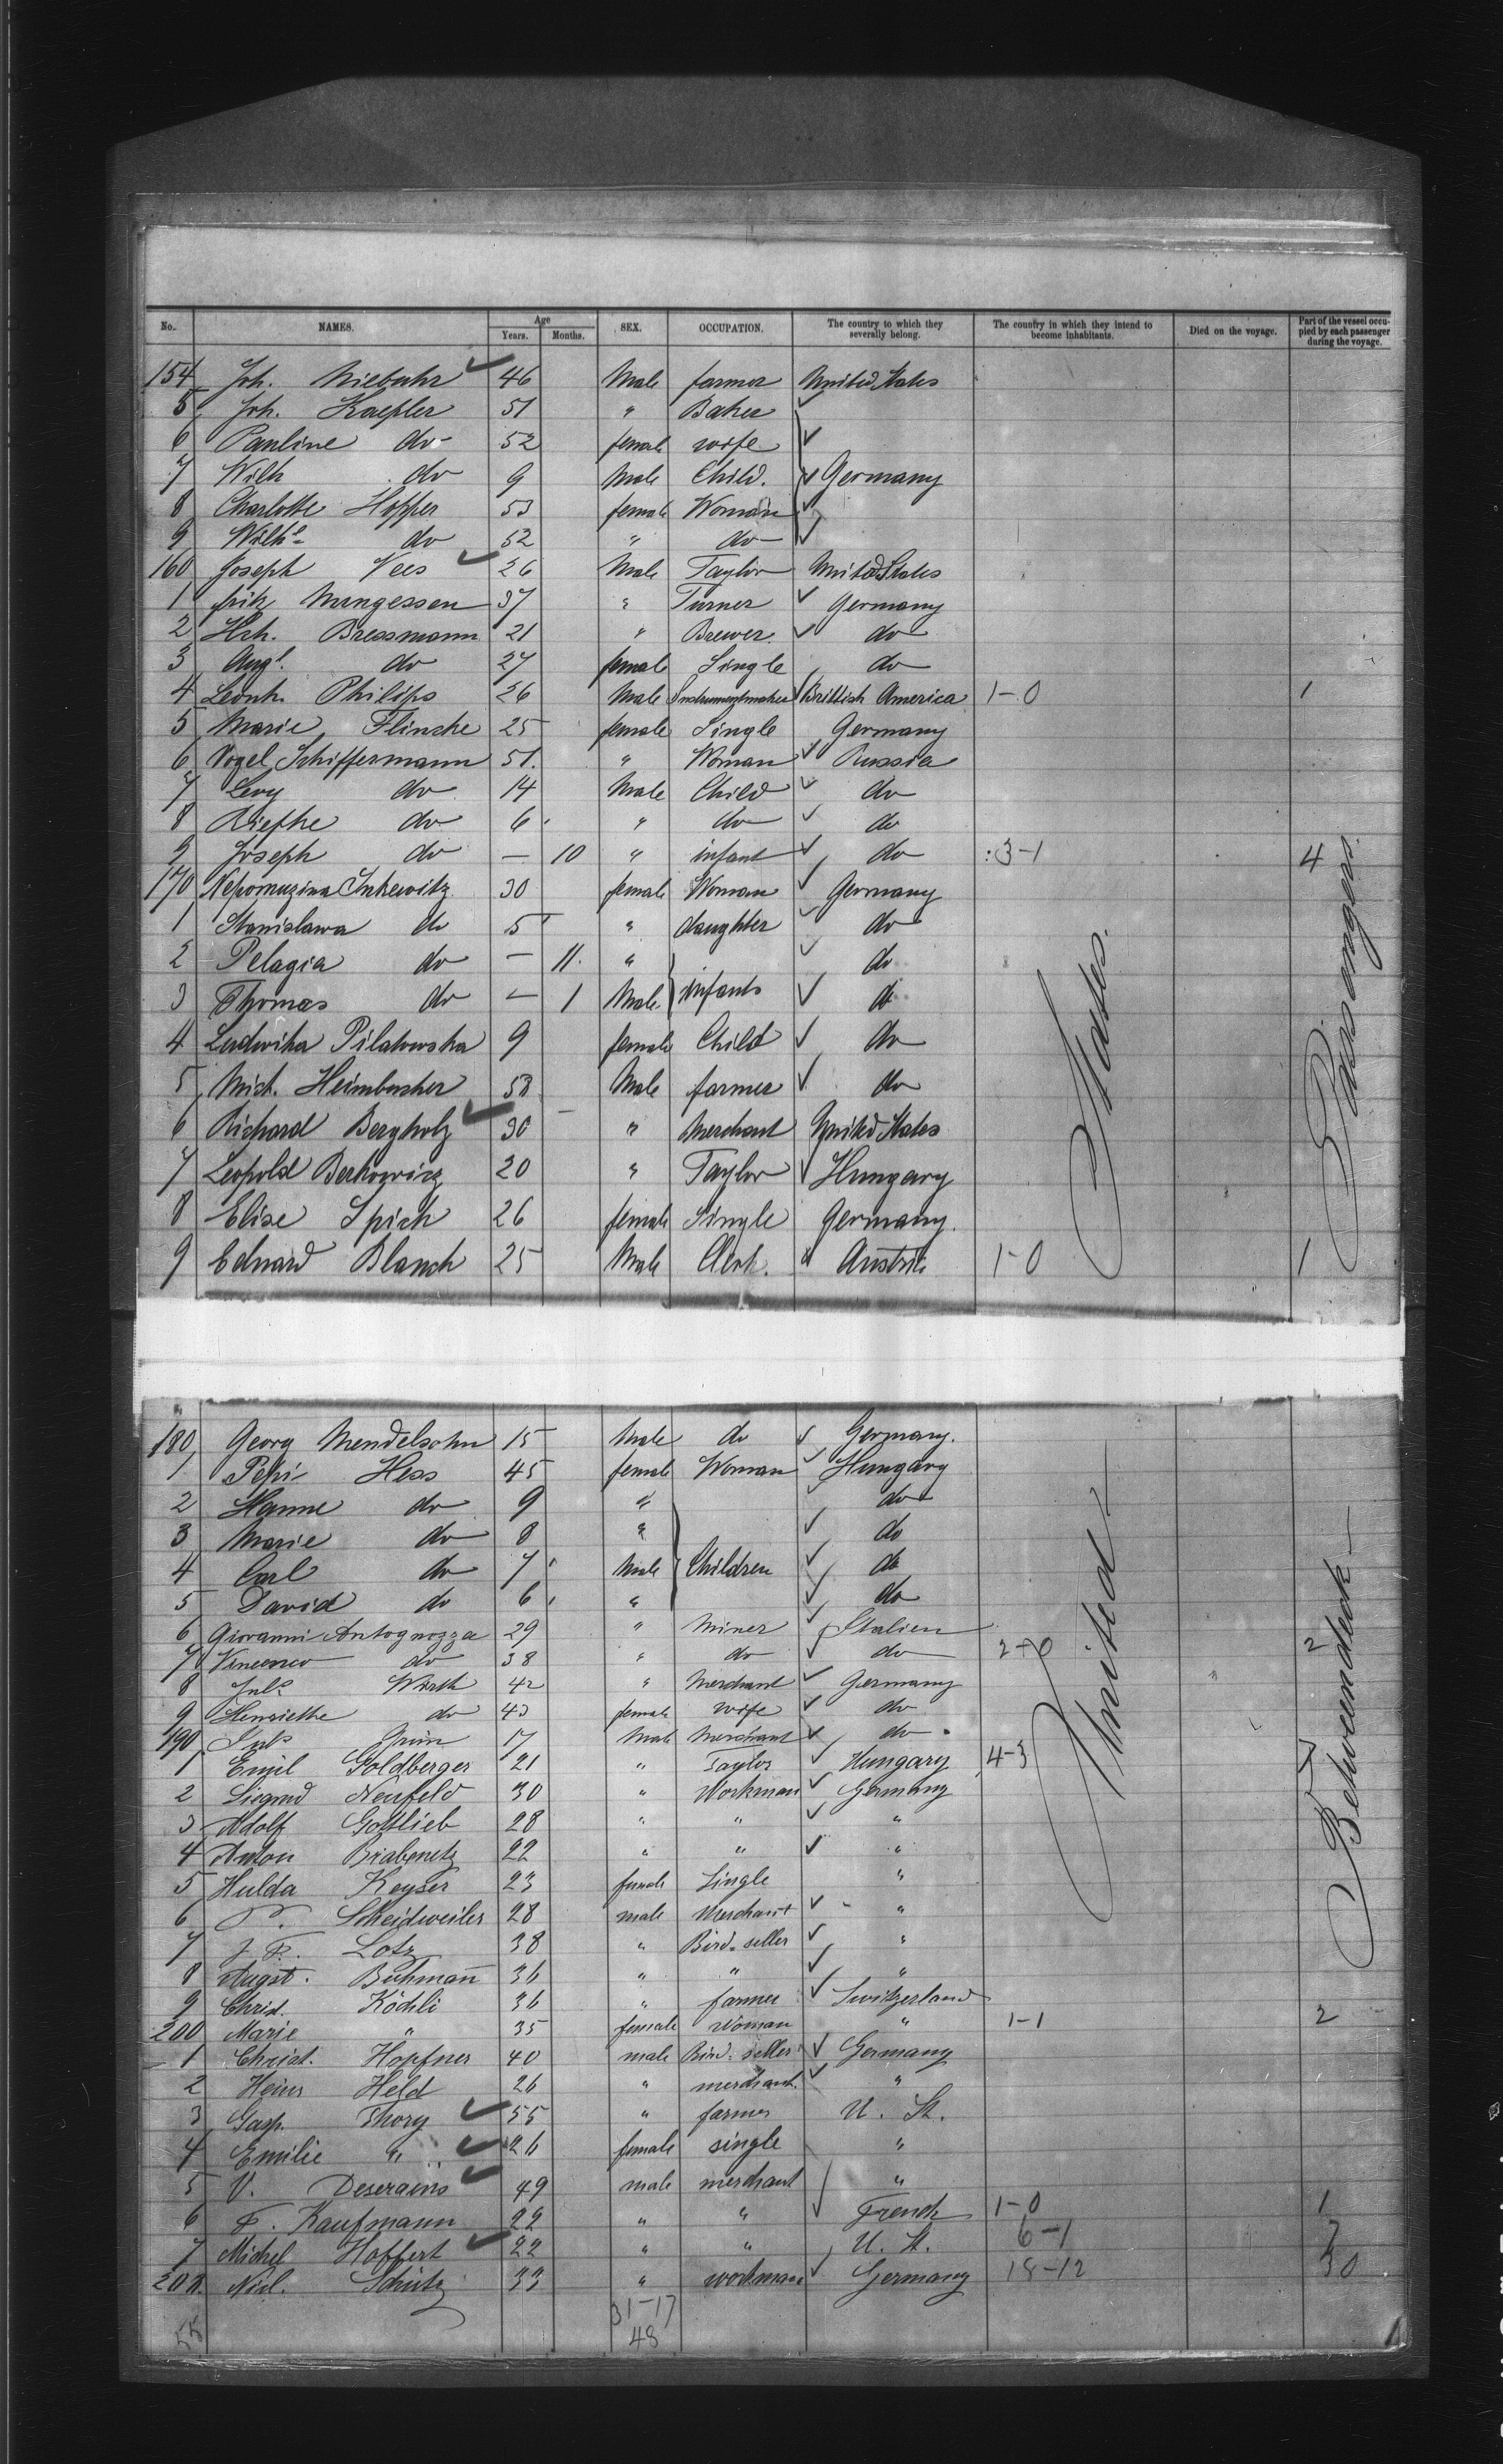 No. NAMES. Age Years. Months. SEX. OCCUPATION. The country to which they severally belong. The country in which they intend to become inhabitants. Died on the voyage. Part of the vessel occupied by each passenger during the voyage.
154 Joh. Niebuhr 46 Male farmer United States
5 Joh. Kaepler 51 " Baker
6 Pauline do 52 female wife
7 Wilh do 9 Male Child. Germany
8 Charlotte Hopper 53 female Woman
9 Wilhe do 52 " do
160 Joseph Vees 26 Male Taylor United States
1 frih Mungessen 37 " Turner Germany
2 Hrh. Bressmann 21 " Brewer. do
3 Augt. do 27 female Single do
4 Leonh. Philips 26 Male Instrumentmaker Brittish America 1-0 1
5 Marie Flinche 25 female Single Germany
6 Vogel Schiffermann 51. " Woman Russia
7 Levy do 14 Male Child do
8 Riefke do 6 " do do
9 Joseph do — 10 " infant do 3-1 4
170 Nepomuzina Inkewitz 30 female Woman Germany
1 Stanislawa do 5 " daughter do
2 Pelagia do — 11. " do
3 Thomas do — 1 Male infants do
4 Ludwika Pilatowska 9 female Child do
5 Mich. Heimbucher 58 Male farmer do
6 Richard Bergholz 30 " Merchant United States
7 Leopold Berkowicz 20 " Taylor Hungary
8 Elise Spich 26 female Single Germany.
9 Eduard Blanch 25 Male Clerk. Austria 1-0 1
180 Georg Mendelsohn 15 Male do Germany.
1 Pepi Hess 45 female Woman Hungary
2 Hanne do 9 " do
3 Marie do 8 " do
4 Carl do 7 Male Children do
5 David do 6 " do
6 Giovanni Antognozza 29 " Miner Italien
7 Vincenco do 38 " do do 2-0 2
8 Juls Wirth 42 " Merchant Germany
9 Henriethe do 43 female wife do
190 Juls Grün 17 Male Merchant do
1 Emil Goldberger 21 " Taylor Hungary 4-3 7
2 Siegmd Neufeld 30 " Workman Germany
3 Adolf Gottlieb 28 " " "
4 Anton Brabenetz 22 " " "
5 Hulda Keyser 23 female Single "
6 P. Scheidweiler 28 male Merchant "
7 J. F. Lotz 38 " Bird-seller "
8 Augst. Buhmann 36 " " "
9 Christ. Köchli 36 " farmer Switzerland
200 Marie " 35 female woman " 1-1 2
1 Christ. Hopfner 40 male Bird-seller Germany
2 Heinr Held 26 " merchant. "
3 Gasp. Thory 55 " farmer U. St.
4 Emilie " 26 female single "
5 V. Deserains 49 male merchant "
6 F. Kaufmann 22 " " French 1-0 1
7 Michel Hoffert 22 " " U. St. 6-1 7
208 Nicl. Schütz 33 " workman Germany 18-12 30
55 31-17
48
United States.
Betweendeck — Passengers.